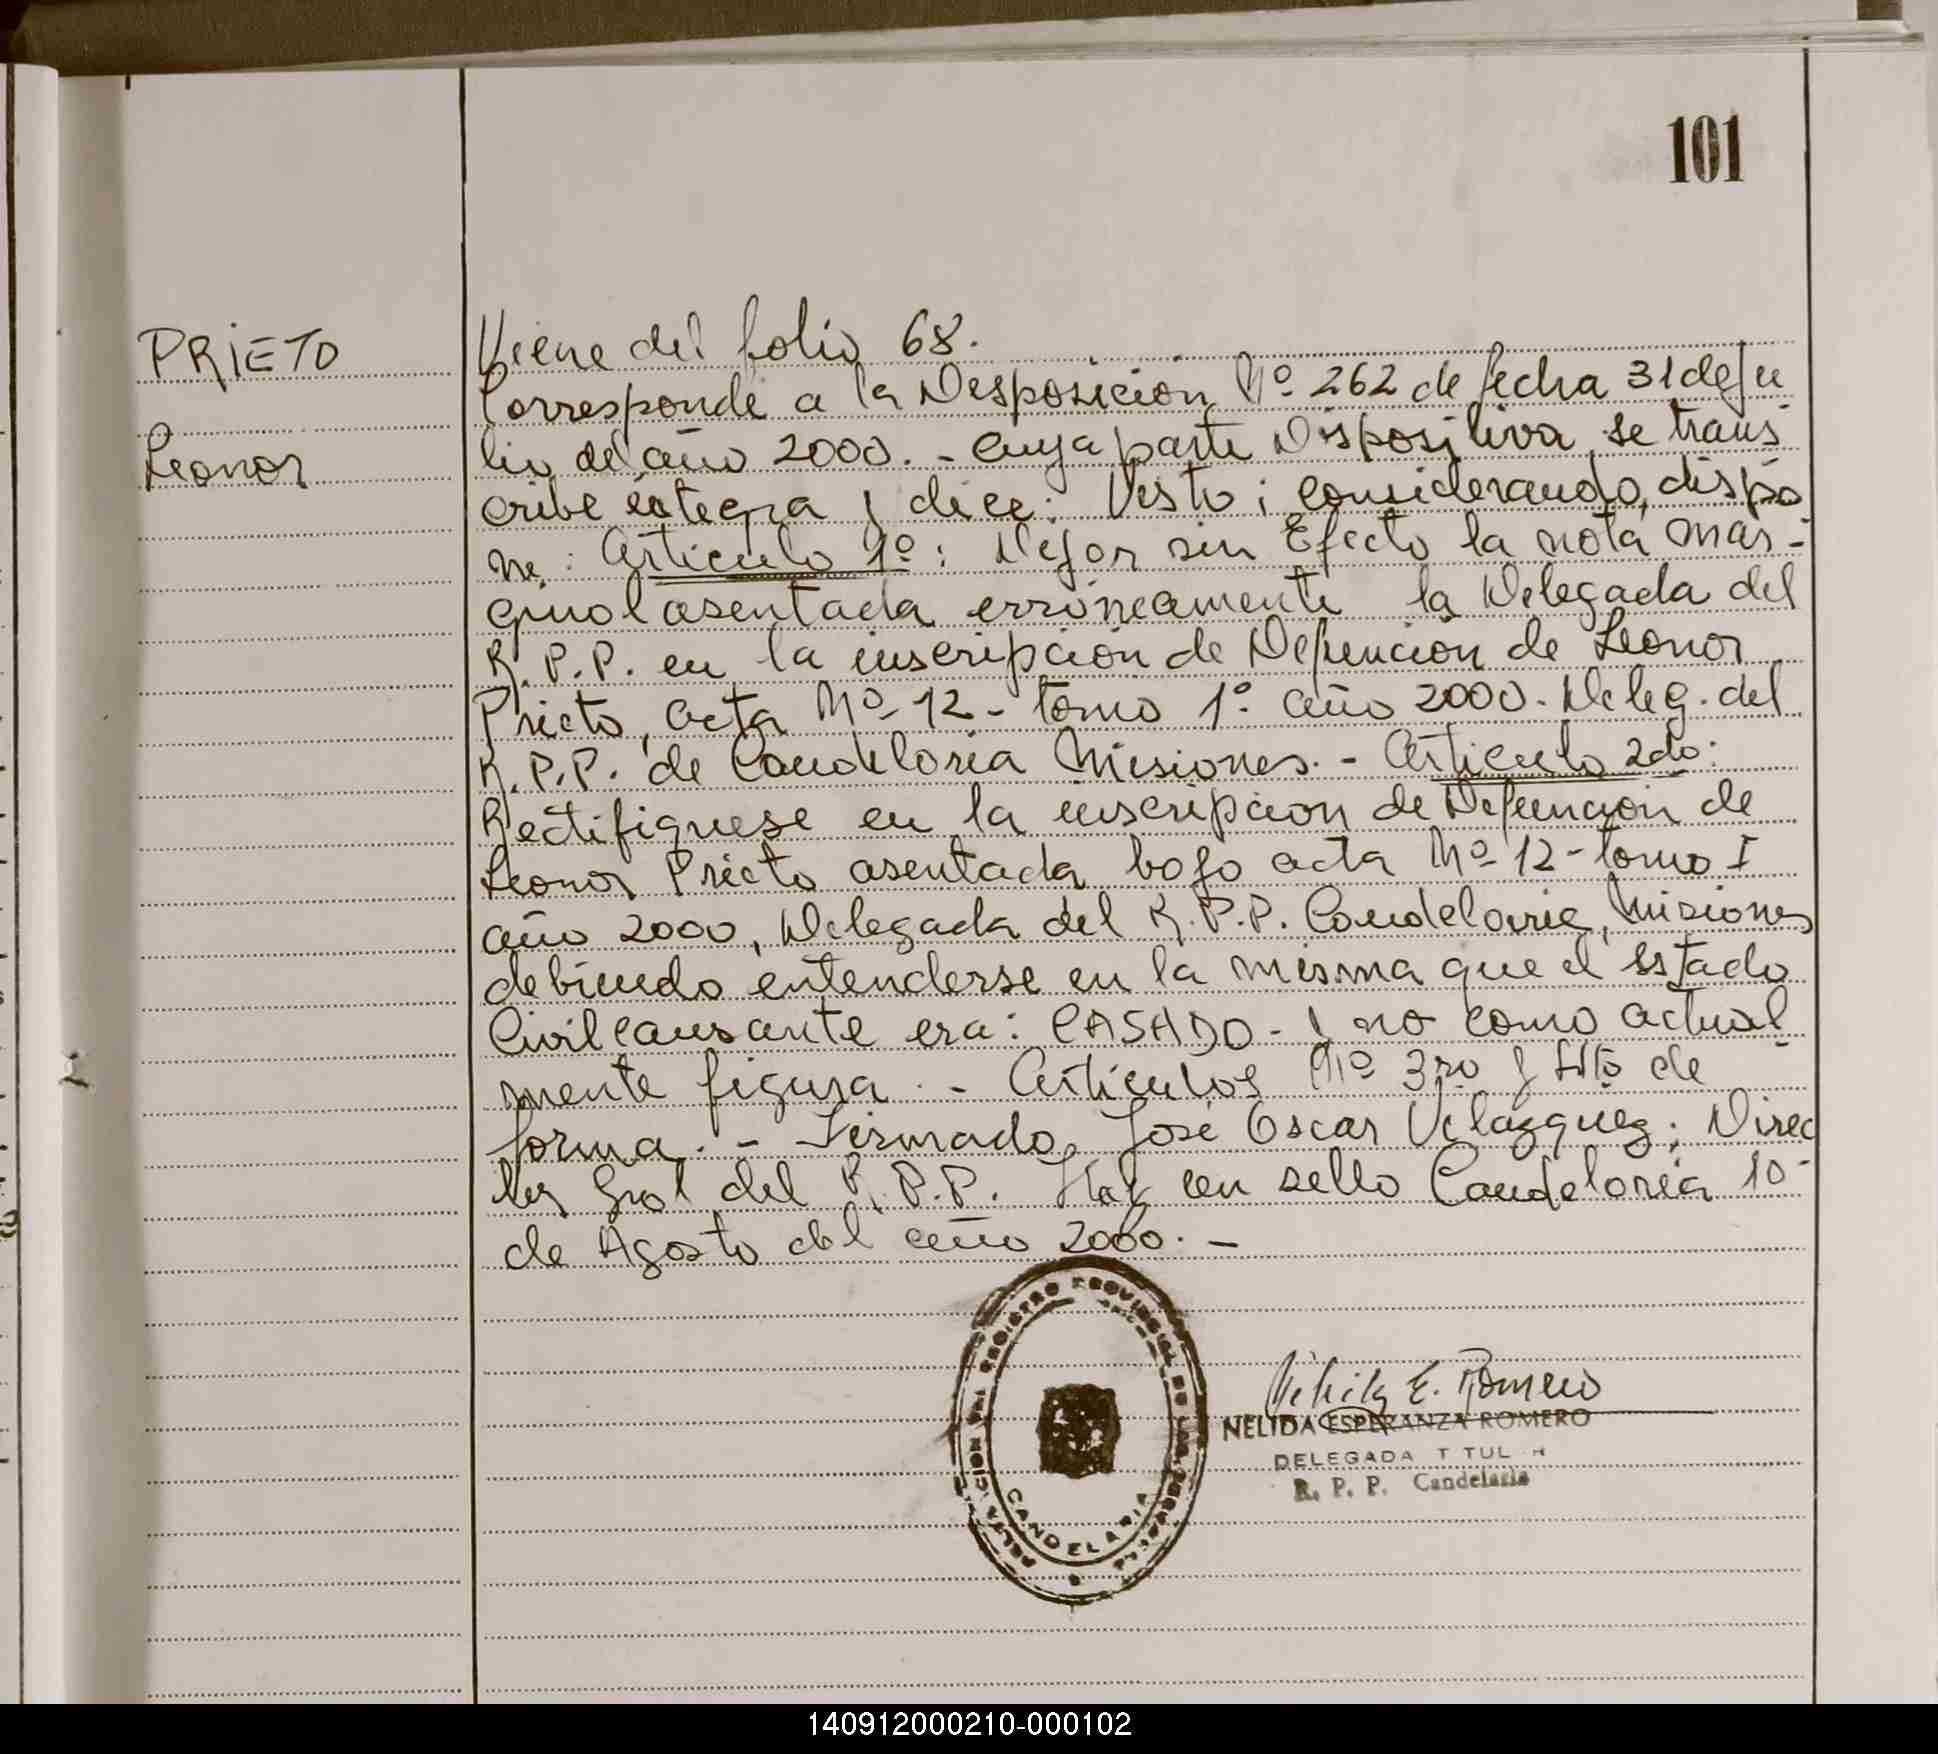 101
PRIETO
Leonor
Viene del folio 68.
Corresponde a la Disposición Nº 262 de fecha 31 de Ju
lio del año 2000. - Cuya parte Dispositiva se trans
cribe íntegra y dice: Visto; Considerando, dispo
ne: Articulo 1º: Dejar sin Efecto la nota mar-
ginal asentada erróneamente la Delegada del
R.P.P. en la inscripción de Defunción de Leonor
Prieto, acta Nº 12 - tomo 1º año 2000. Deleg. del
R.P.P. de Candelaria Misiones. - Articulo 2do:
Rectifiquese en la inscripcion de Defuncion de
Leonor Prieto asentada bajo acta Nº 12 - tomo I
año 2000, Delegada del R.P.P. Candelaria, Misiones
debiendo entenderse en la misma que el Estado
Civil causante era: CASADO - y no como actual
mente figura. - Articulos Nº 3ro y 4to de
forma. - Firmado José Oscar Velazquez; Direc
tor Gral del R.P.P. Hay un sello Candelaria 10-
de Agosto del año 2000. -
DELEGACION DEL REGISTRO PROVINCIAL DE LAS PERSONAS
CANDELARIA
Nélida E. Romero
NELIDA ESPERANZA ROMERO
DELEGADA T TUL
R. P. P. Candelaria
140912000210-000102